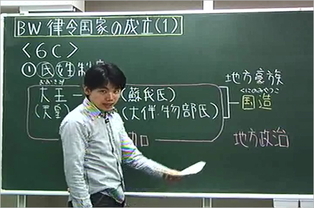 BW 律令国家の成立(1)
<6C>
①氏姓制
おおきみ
大王 (蘇我氏
(天皇 (大伴・物部氏)
地方豪族
くにのみやつこ
国造
地方政治